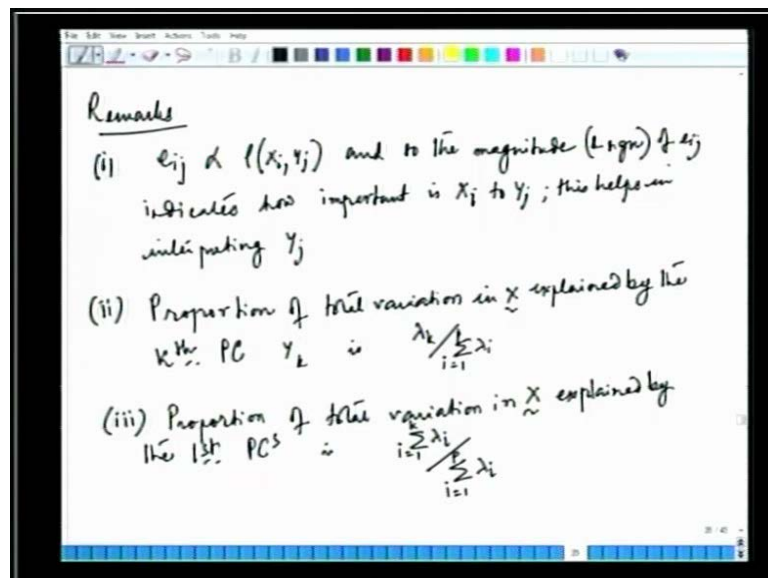 File Edit View Insert Actions Tools Help
Remarks
(i) eij α ρ(Xi, Yj) and so the magnitude (& sgn) of eij
indicates how important is Xi to Yj ; this helps in
interpreting Yj
(ii) Proportion of total variation in X explained by the
kth PC Yk is λk / Σ i=1 p λi
(iii) Proportion of total variation in X explained by
the 1st PCs is Σ i=1 k λi / Σ i=1 p λi